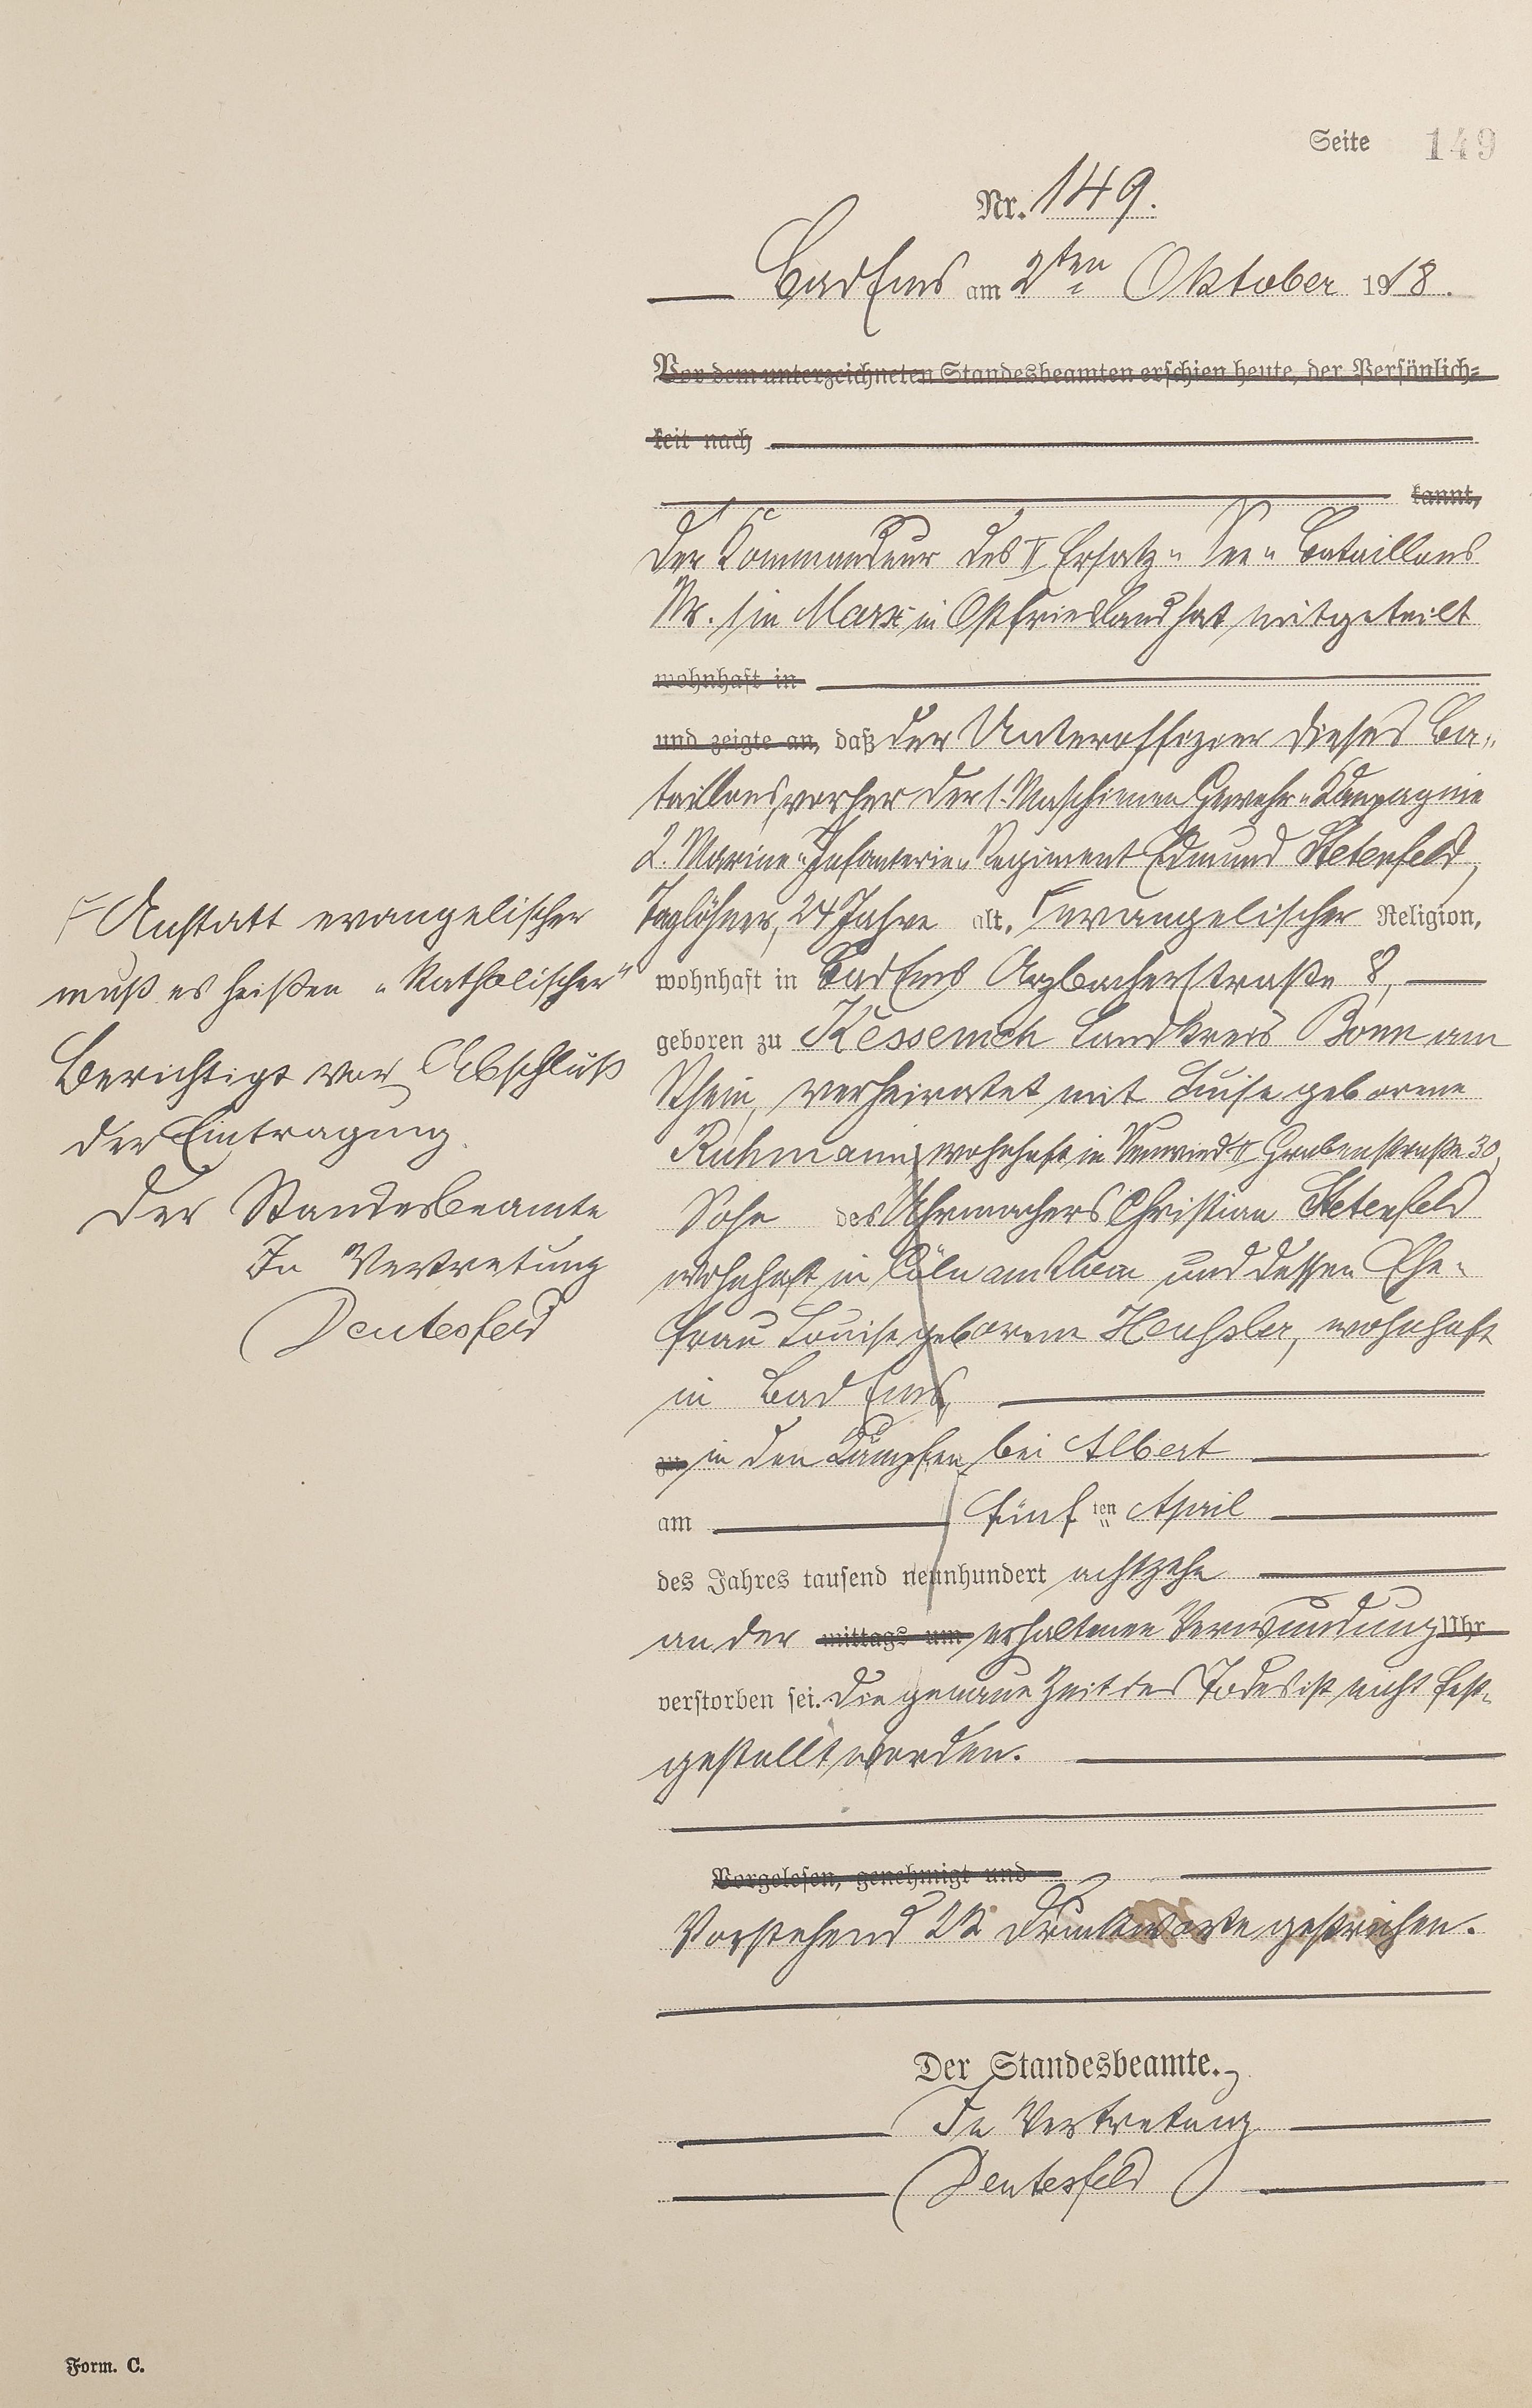 Seite 149
Nr. 149.
Bad Ems am 2ten Oktober 1918.
Vor dem unterzeichneten Standesbeamten erschien heute, der Persönlich=
keit nach
kannt,
Der Kommandeur des II Ersatz= See= Bataillons
Nr. 1 in Marx in Ostfriesland hat mitgeteilt
wohnhaft in
und zeigte an, daß der Unteroffizier dieses Ba=
taillons, vorher der 1. Maschinen Gewehr= Kompagnie
2. Marine= Infanterie= Regiment Edmund Stetenfeld,
Taglöhner, 24 Jahre alt, Γ evangelischer Religion,
wohnhaft in Bad Ems Arzbacherstraße 8,
geboren zu Kessenich Landkreis Bonn am
Rhein, verheiratet mit Luise geborene
Ruhmann, wohnhaft in Neuwied II Grabenstraße 30,
Sohn des Uhrmachers Christian Stetenfeld
wohnhaft in Cöln am Rhein und dessen Ehe=
frau Louise geborene, wohnhaft
in Bad Ems,
zu in den Kämpfen bei Albert
am fünf ten April
des Jahres tausend neunhundert achtzehn
an der mittags um erhaltenen Verwundung Uhr
verstorben sei. Die genaue Zeit des Todes ist nicht fest=
gestellt worden.
Vorgelesen, genehmigt und
Vorstehend Druckworte gestrichen.
Der Standesbeamte.
In Vertretung
Deutesfeld
Γ Anstatt evangelischer
muß es heißen „Katholischer"
Berichtigt vor Abschluß
der Eintragung.
Der Standesbeamte
In Vertretung
Deutesfeld
Form. C.